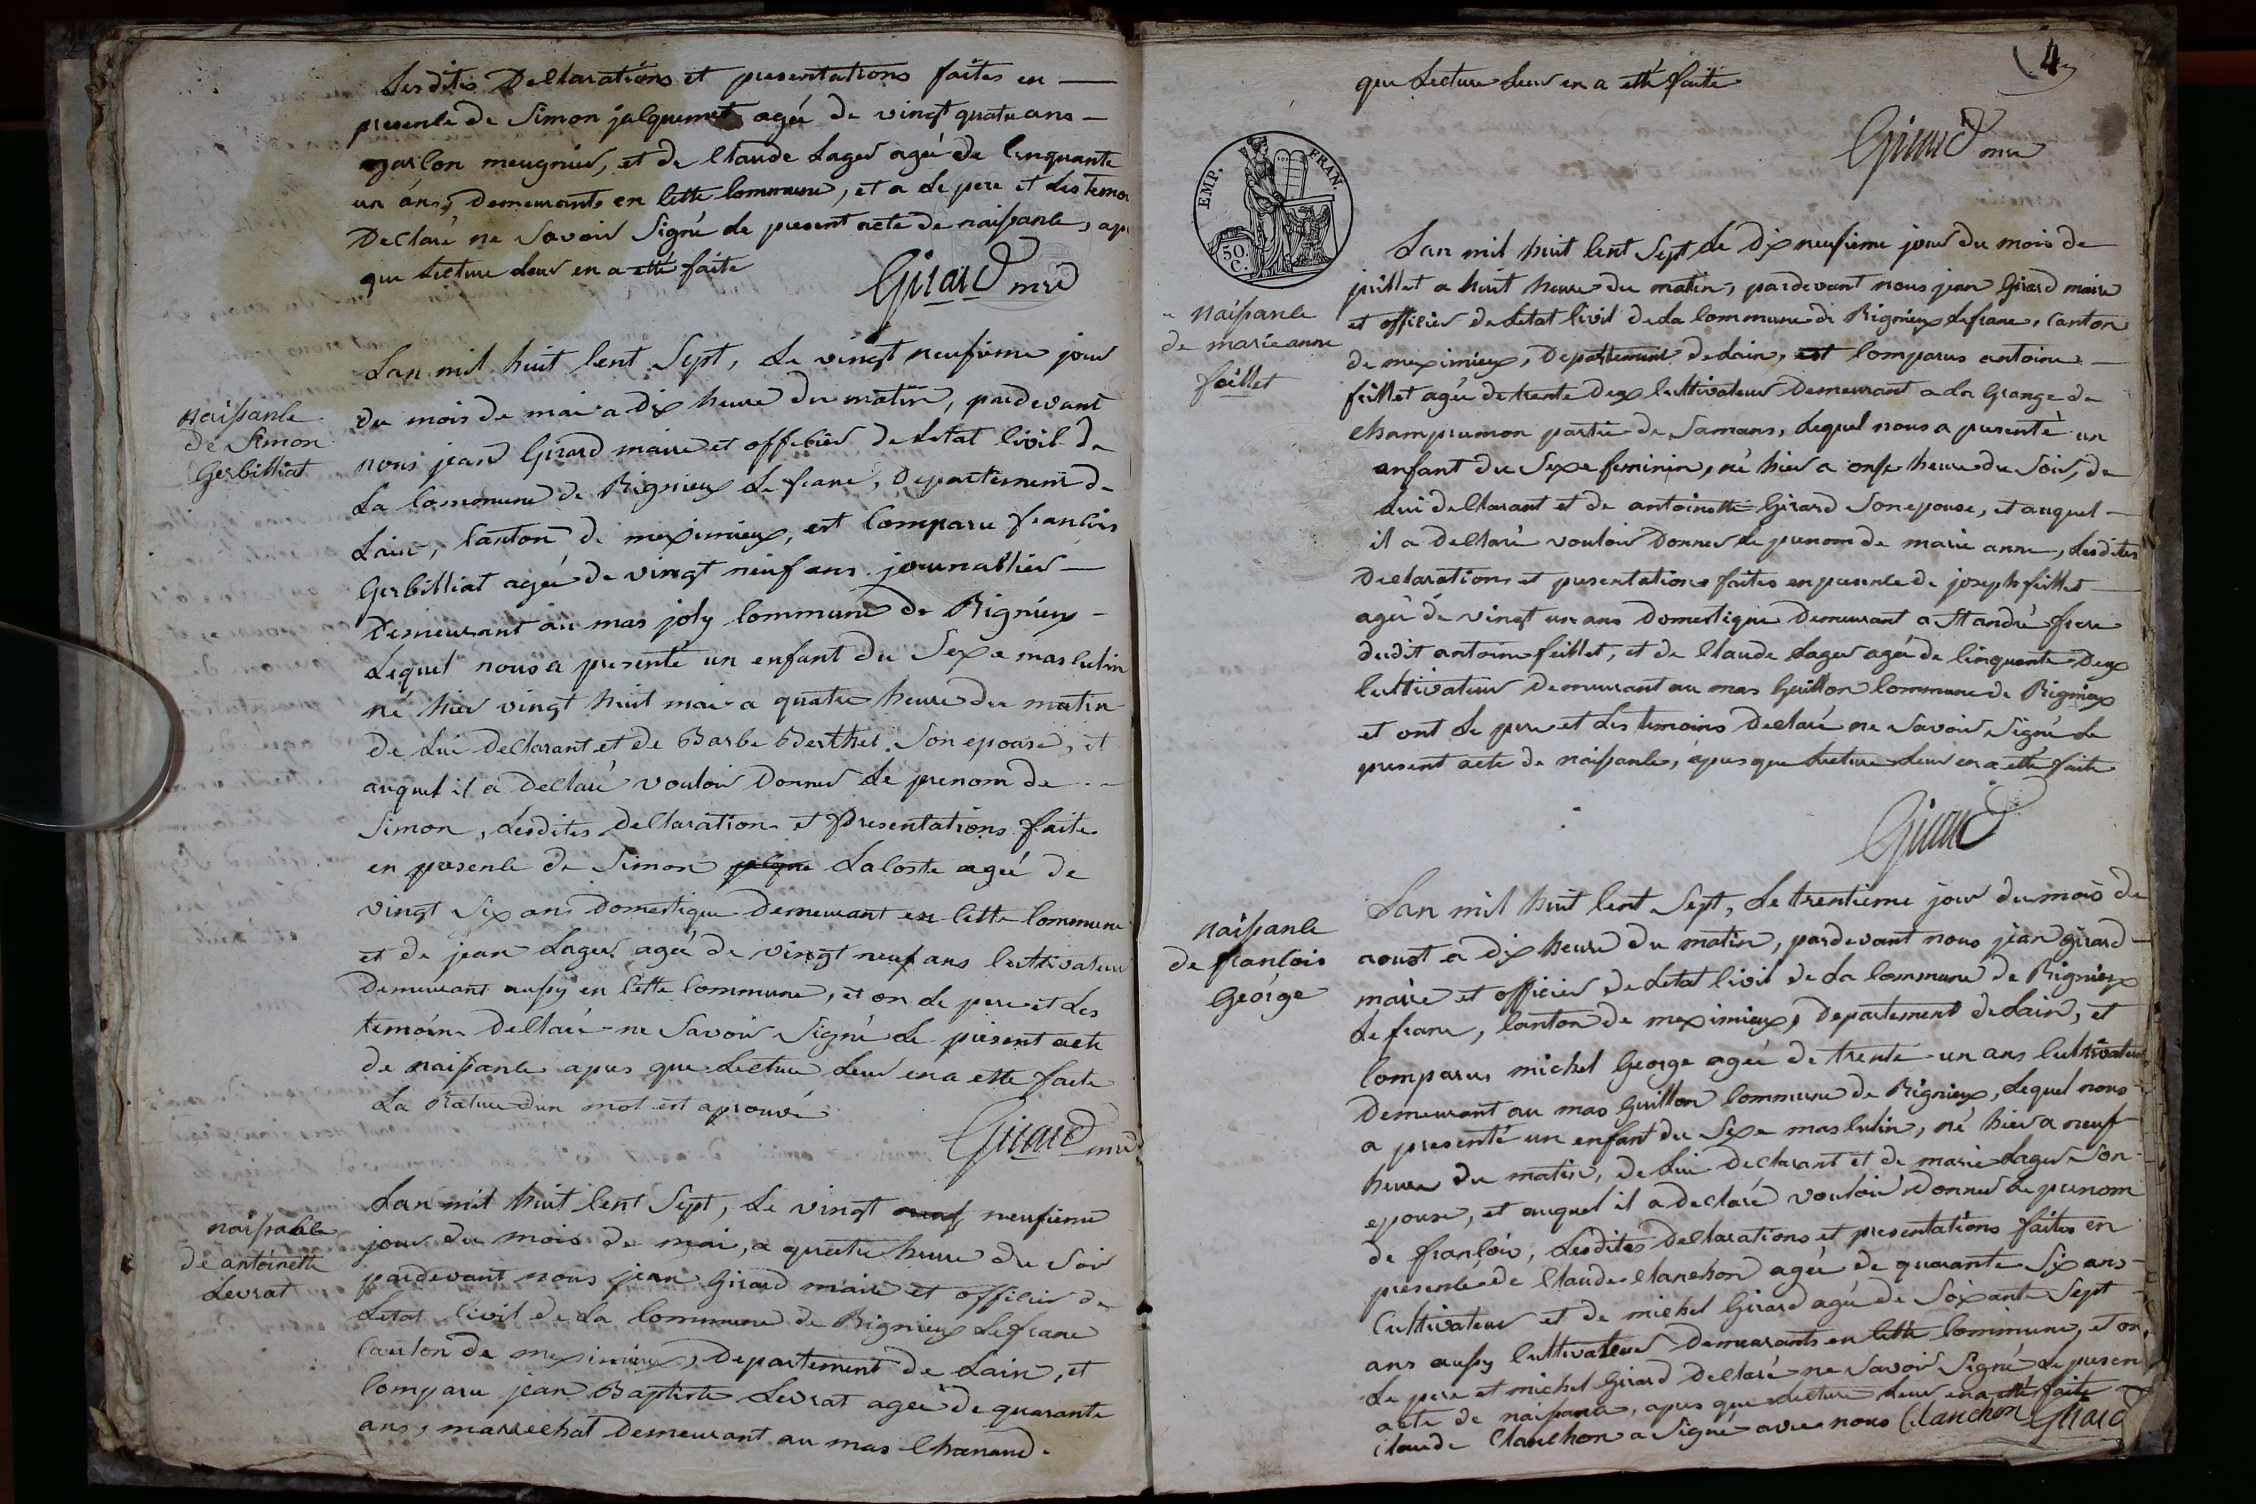 Lesdites Declarations et presentations faites en
presence de Simon jacquemet ageé de vingt quatre ans
garcon meugnier, et de Claude Lager ageé de Cinquante
un ans, Demeurants en cette Commune, et a le pere et les temoi
Declaré ne savoir Signé le present acte de naissance, ap
que lecture leur en a etté faite
Girard mre
naissance
de Simon
Gerbilliat
Lan mil huit Cent Sept, Le vingt neufieme jour
du mois de mai a Dix heure du matin, pardevant
nous jean Girard maire et officier de Letat Civil de
La Commune de Rignieux Le franc, Departement de
Lain, Canton de meximieux, est Comparu francois
Gerbilliat ageé de vingt neuf ans journallier
Demeurant au mas joly Commune de Rignieux
Lequel nous a presenté un enfant du Sexe masculin
né hier vingt huit mai a quatre heure du matin
de Lui Declarant et de Barbe Berthet Son epouse, et
auquel il a Declaré vouloir Donner Le prenom de
Simon, Lesdites Declaration et Presentations faites
en presence de Simon Lacoste ageé de
vingt Six ans Domestique Demeurant en Cette Commune
et de jean Lager ageé de vingt neuf ans Cultivateur
Demeurant aussy en Cette Commune, et on Le pere et Les
temoins Declaré ne Savoir Signé Le present acte
de naissance apres que Lecture Leur en a etté faite
La Rature dun mot est aprouvé
Girard mre
naissance
de antoinette
Levrat
Lan mil huit Cent Sept, Le vingt neuf neufieme
jour du mois de mai, a quatre heure du Soir
pardevant nous jean Girard maire et officier de
Letat Civil de La Commune de Rignieux Lefranc
Canton de meximieux, Departement de Lain, et
Comparu jean Baptiste Levrat ageé de quarante
ans, marrechal Demeurant au mas Chanaud.
4
que Lecture Leur en a etté faite
Girard mre
EMP. FRAN.
50 C.
naissance
de marie anne
feillet
Lan mil huit Cent Sept Le Dix neufieme jour du mois de
juillet a huit heure du matin, pardevant nous jean Girard maire
et officier de Letat Civil de La Commune de Rignieux Lefranc, Canton
de meximieux, Departement de Lain, est Comparus antoine
feillet ageé de trente Deux Cultivateur Demeurant a La Grange de
Champremon partie de Samans, Lequel nous a presenté un
enfant du Sexe feminin, né hier a onse heure du Soir, de
Lui declarant et de antoinette Girard Son epouse, et auquel
il a Declaré vouloir Donner Le prenom de marie anne, Lesdites
Declarations et presentations faites en presence de joseph feillet
ageé de vingt un ans Domestique Demeurant a St andré frere
dudit antoine feillet, et de Claude Lager ageé de Cinquante Deux
Cultivateur Demeurant au mas Guillon Commune de Rignieux
et ont Le pere et Les temoins Declaré ne Savoir Signé Le
present acte de naissance, apres que Lecture Leur en a etté faite
Girard
naissance
de francois
George
Lan mil huit Cent Sept, Le trentieme jour du mois de
aoust a Dix heure du matin, pardevant nous jean Girard
maire et officier de Letat Civil de La Commune de Rignieux
Le franc, Canton de meximieux, Departement de Lain, et
Comparus michel George ageé de trente un ans Cultivateur
Demeurant au mas Guillon Commune de Rignieux, Lequel nous
a presenté un enfant du Sexe masculin, né hier a neuf
heure du matin, de Lui Declarant et de marie Lager Son
epouse, et auquel il a declaré vouloir Donner Le prenom
de francois, Lesdites Declarations et presentations faites en
presence de Claude Clanchon ageé de quarante Six ans
Cultivateur et de michel Girard ageé de Soixante Sept
ans aussy Cultivateur Demeurants en Cette Commune, et on
Le pere et michel Girard Declaré ne Savoir Signé Le presen
acte de naissance, apres que Lecture Leur en a etté faite
Claude Clanchon a Signé avec nous Clanchon Girard